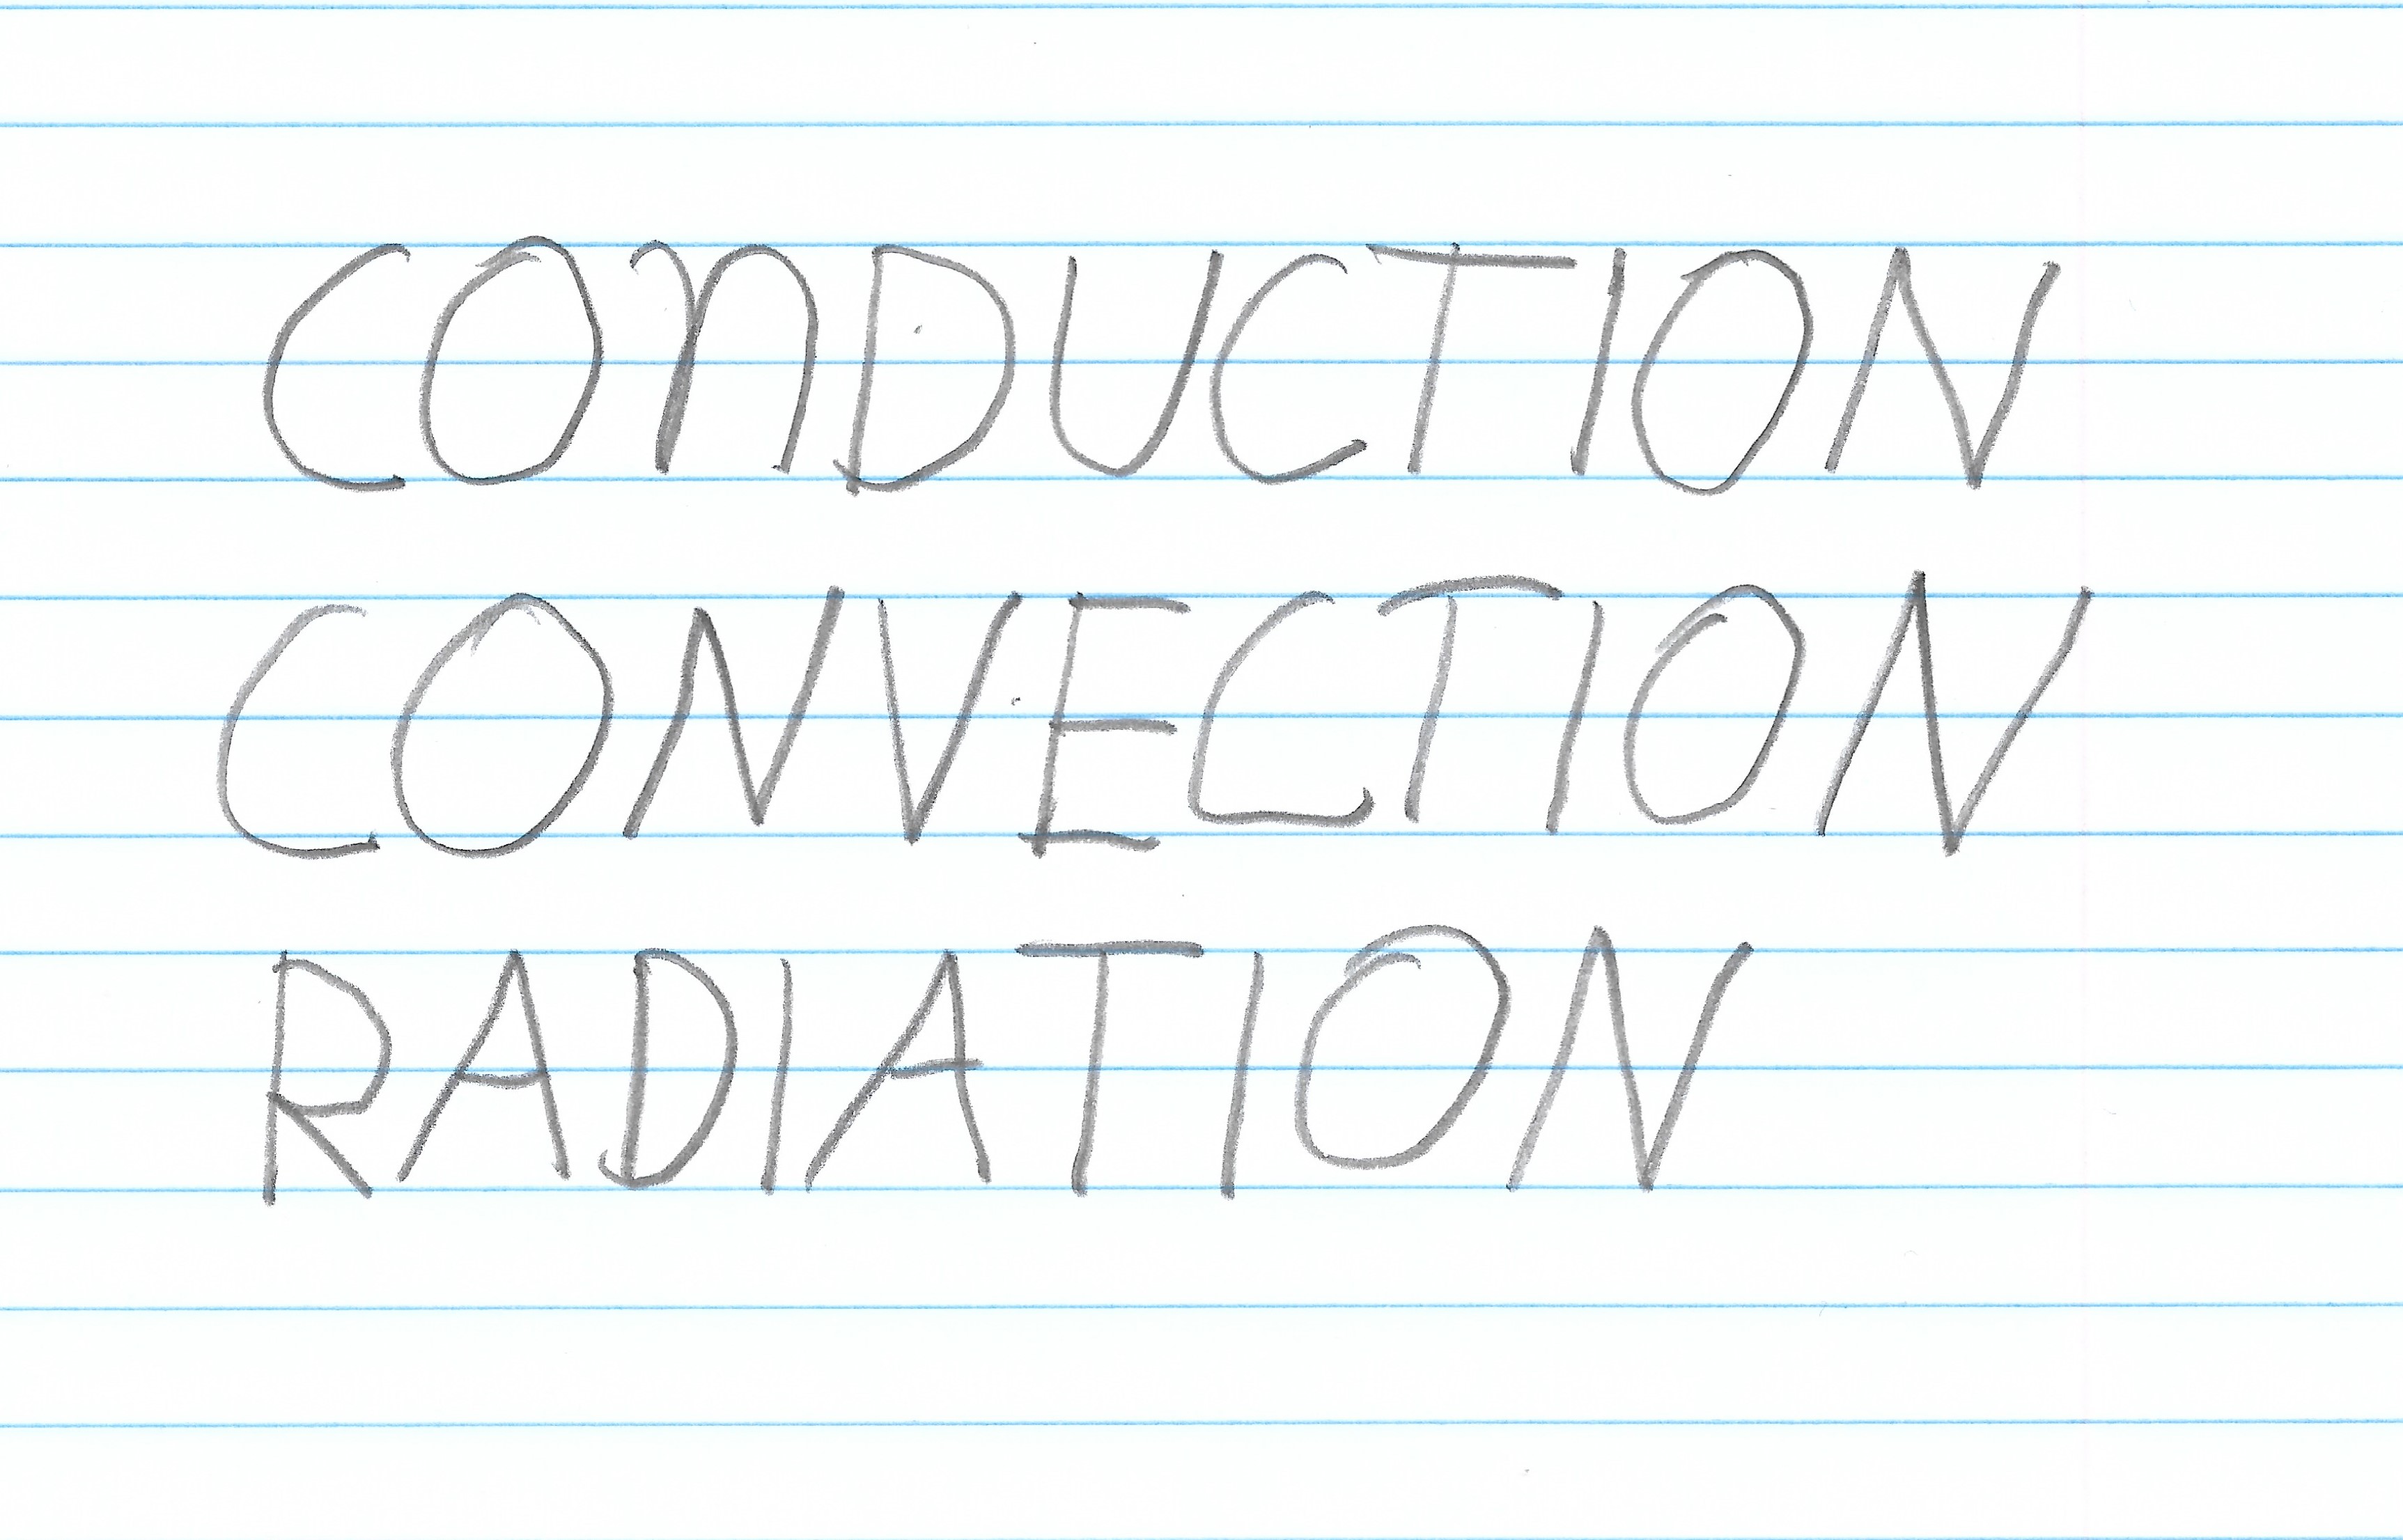 CONDUCTION
CONVECTION
RADIATION